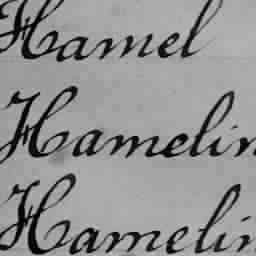 Hamel
Hamelin
Hamelin